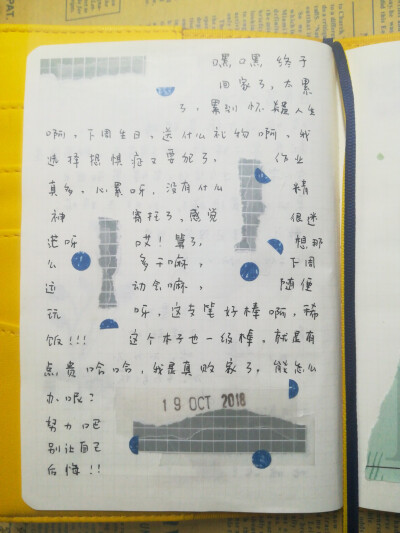 嘿嘿 终于
回家了，太累
了，累到怀疑人生
啊，下周生日，送什么礼物啊，我
选择恐惧症又要犯了， 作业
真多，心累呀，没有什么 精
神 寄托了，感觉 很迷
茫呀 哎！算了， 想那
么 多干嘛， 下周
运 动会嘛， 随便
玩 呀，这支笔好棒啊，稀
饭!!! 这个本子也一级棒，就是有
点贵哈哈，我是真败家了，能怎么
办呢？
19 OCT 2018
努力吧
别让自己
后悔!!